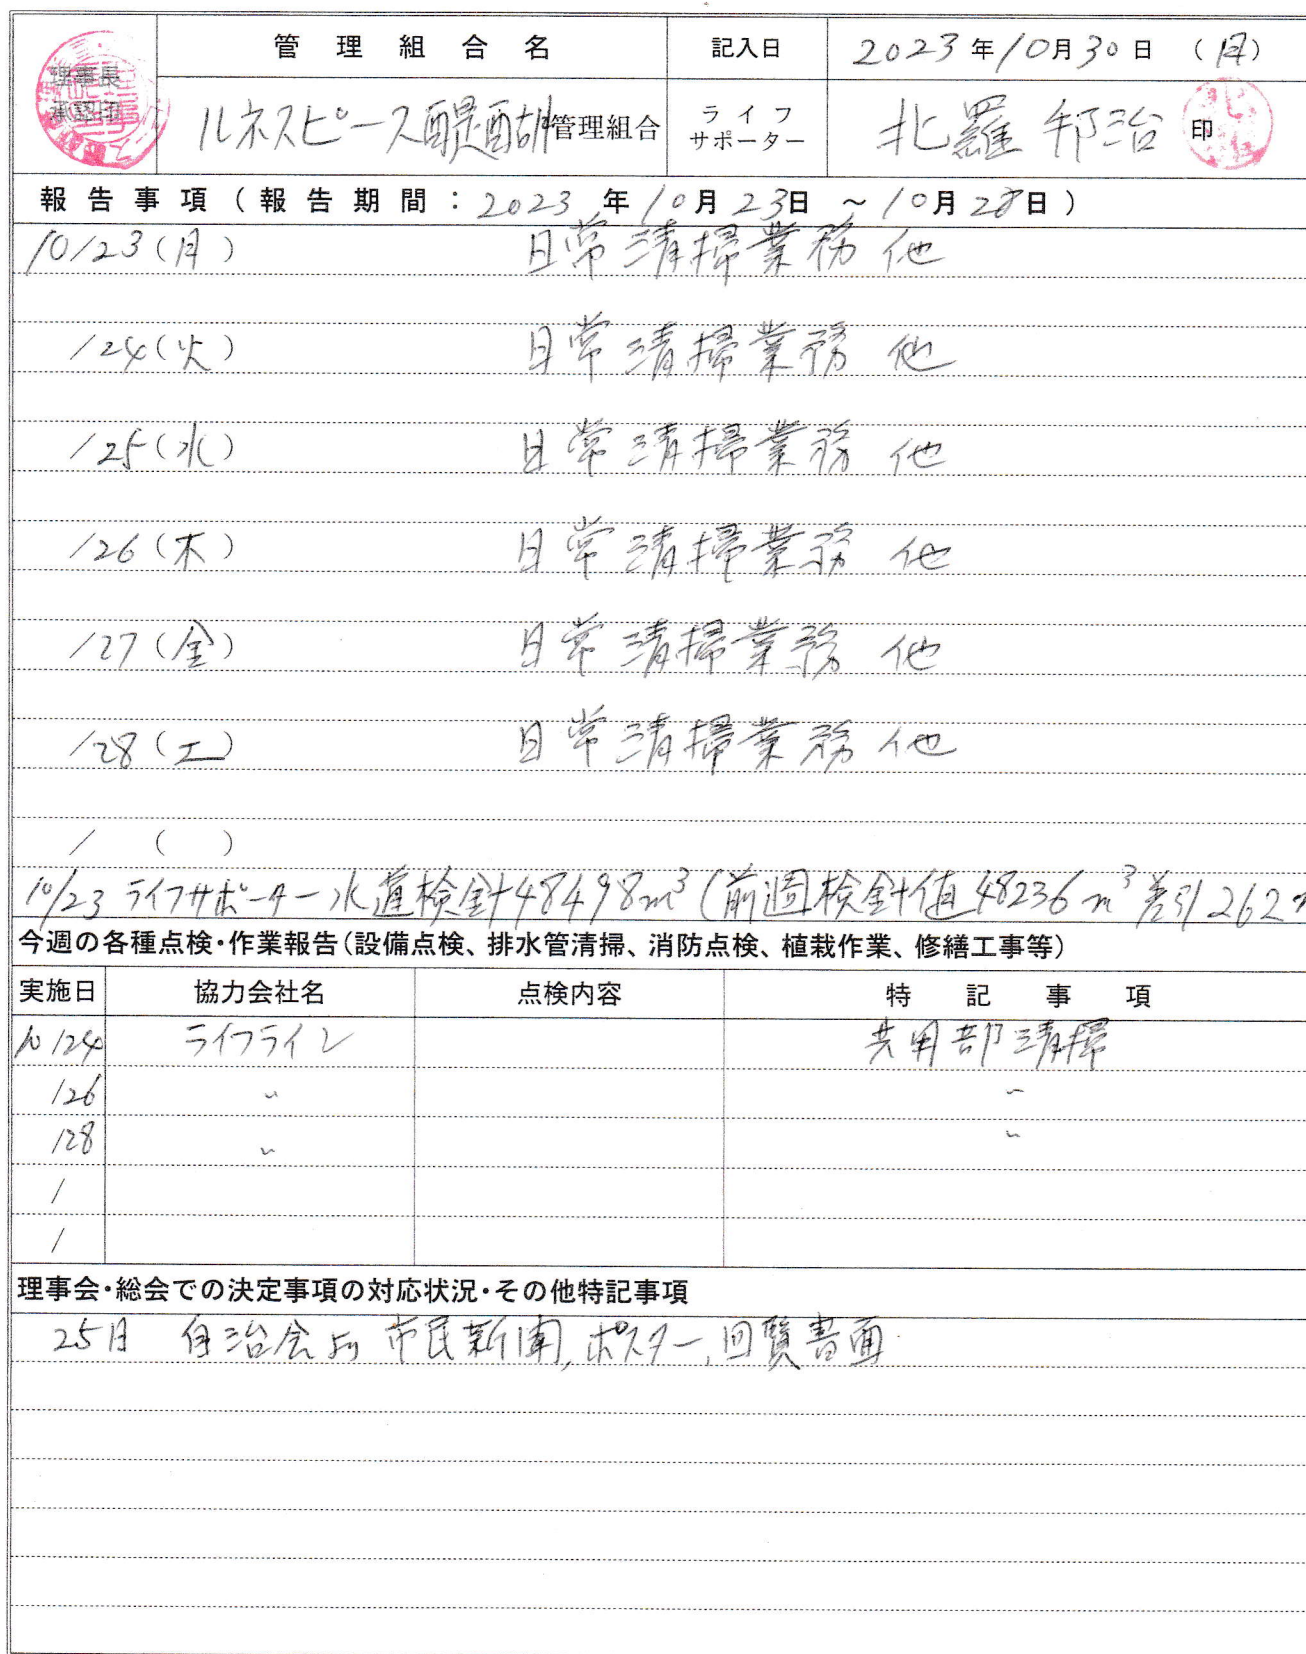 管理組合名 記入日 2023年10月30日 (月)
理事長
承認印
ルネスピース醍醐管理組合 ライフサポーター 北羅 邦治 印
報告事項(報告期間:2023年10月23日 ~10月28日)
10/23(月) 日常清掃業務 他
/24(火) 日常清掃業務 他
/25(水) 日常清掃業務 他
/26(木) 日常清掃業務 他
/27(金) 日常清掃業務 他
/28(土) 日常清掃業務 他
/ ( )
10/23 ライフサポーター水道検針48498m³(前週検針値48236m³差引262
今週の各種点検・作業報告(設備点検、排水管清掃、消防点検、植栽作業、修繕工事等)
実施日 協力会社名 点検内容 特記事項
10/24 ライフライン 共用部清掃
/26 〃 〃
/28 〃 〃
/
/
理事会・総会での決定事項の対応状況・その他特記事項
25日 自治会より 市民新聞,ポスター,回覧書面